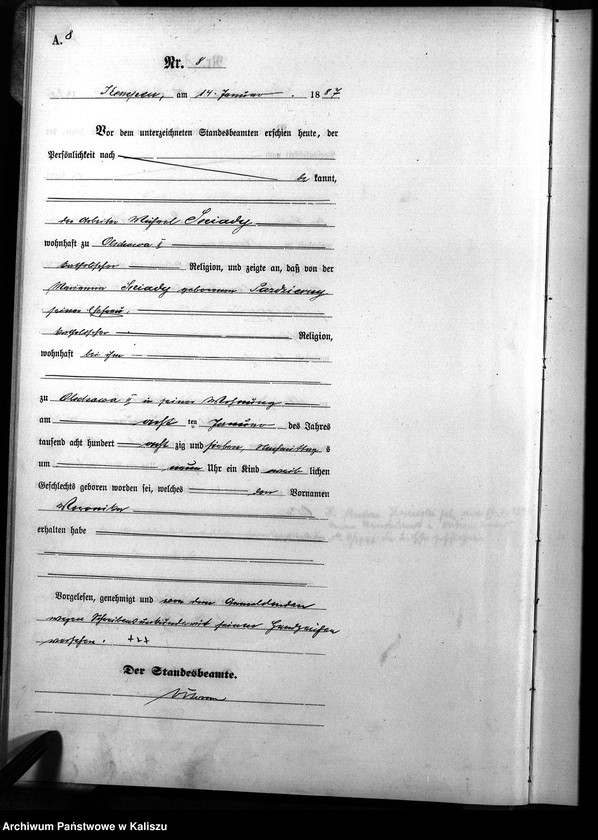 A. 8
Nr. 8
Kempen, am 14. Januar 1887
Vor dem unterzeichneten Standesbeamten erschien heute, der
Persönlichkeit nach
be kannt,
der Arbeiter Michael Sociady
wohnhaft zu Olschowa I
katholischer Religion, und zeigte an, daß von der
Marianna Sociady geborenen
seiner Ehefrau,
katholischer Religion,
wohnhaft bei ihm
zu Olschowa I in seiner Wohnung
am acht ten Januar des Jahres
tausend acht hundert acht zig und sieben, Nachmittag s
um neun Uhr ein Kind weib lichen
Geschlechts geboren worden sei, welches den Vornamen
Veronika
erhalten habe
Vorgelesen, genehmigt und von dem Anmeldenden
wegen Schreibensunkunde mit seinem Handzeichen
versehen. +++
Der Standesbeamte.
Archiwum Państwowe w Kaliszu